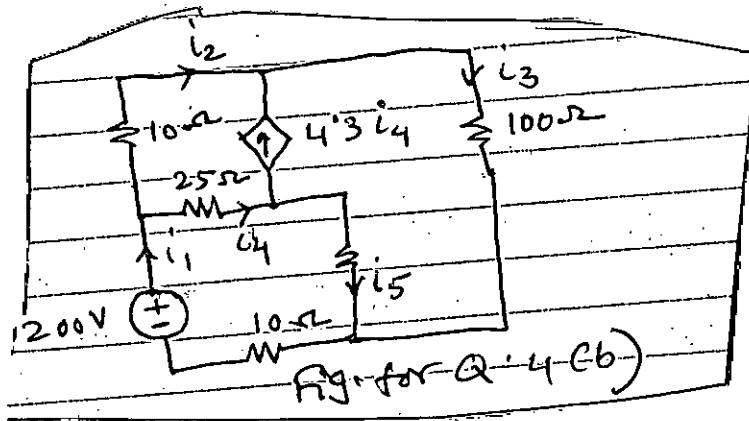 i2
i3
10Ω
4.3 i4
100Ω
25Ω
i4
i1
i5
200V
+
-
10Ω
Fig. for Q.4 (b)